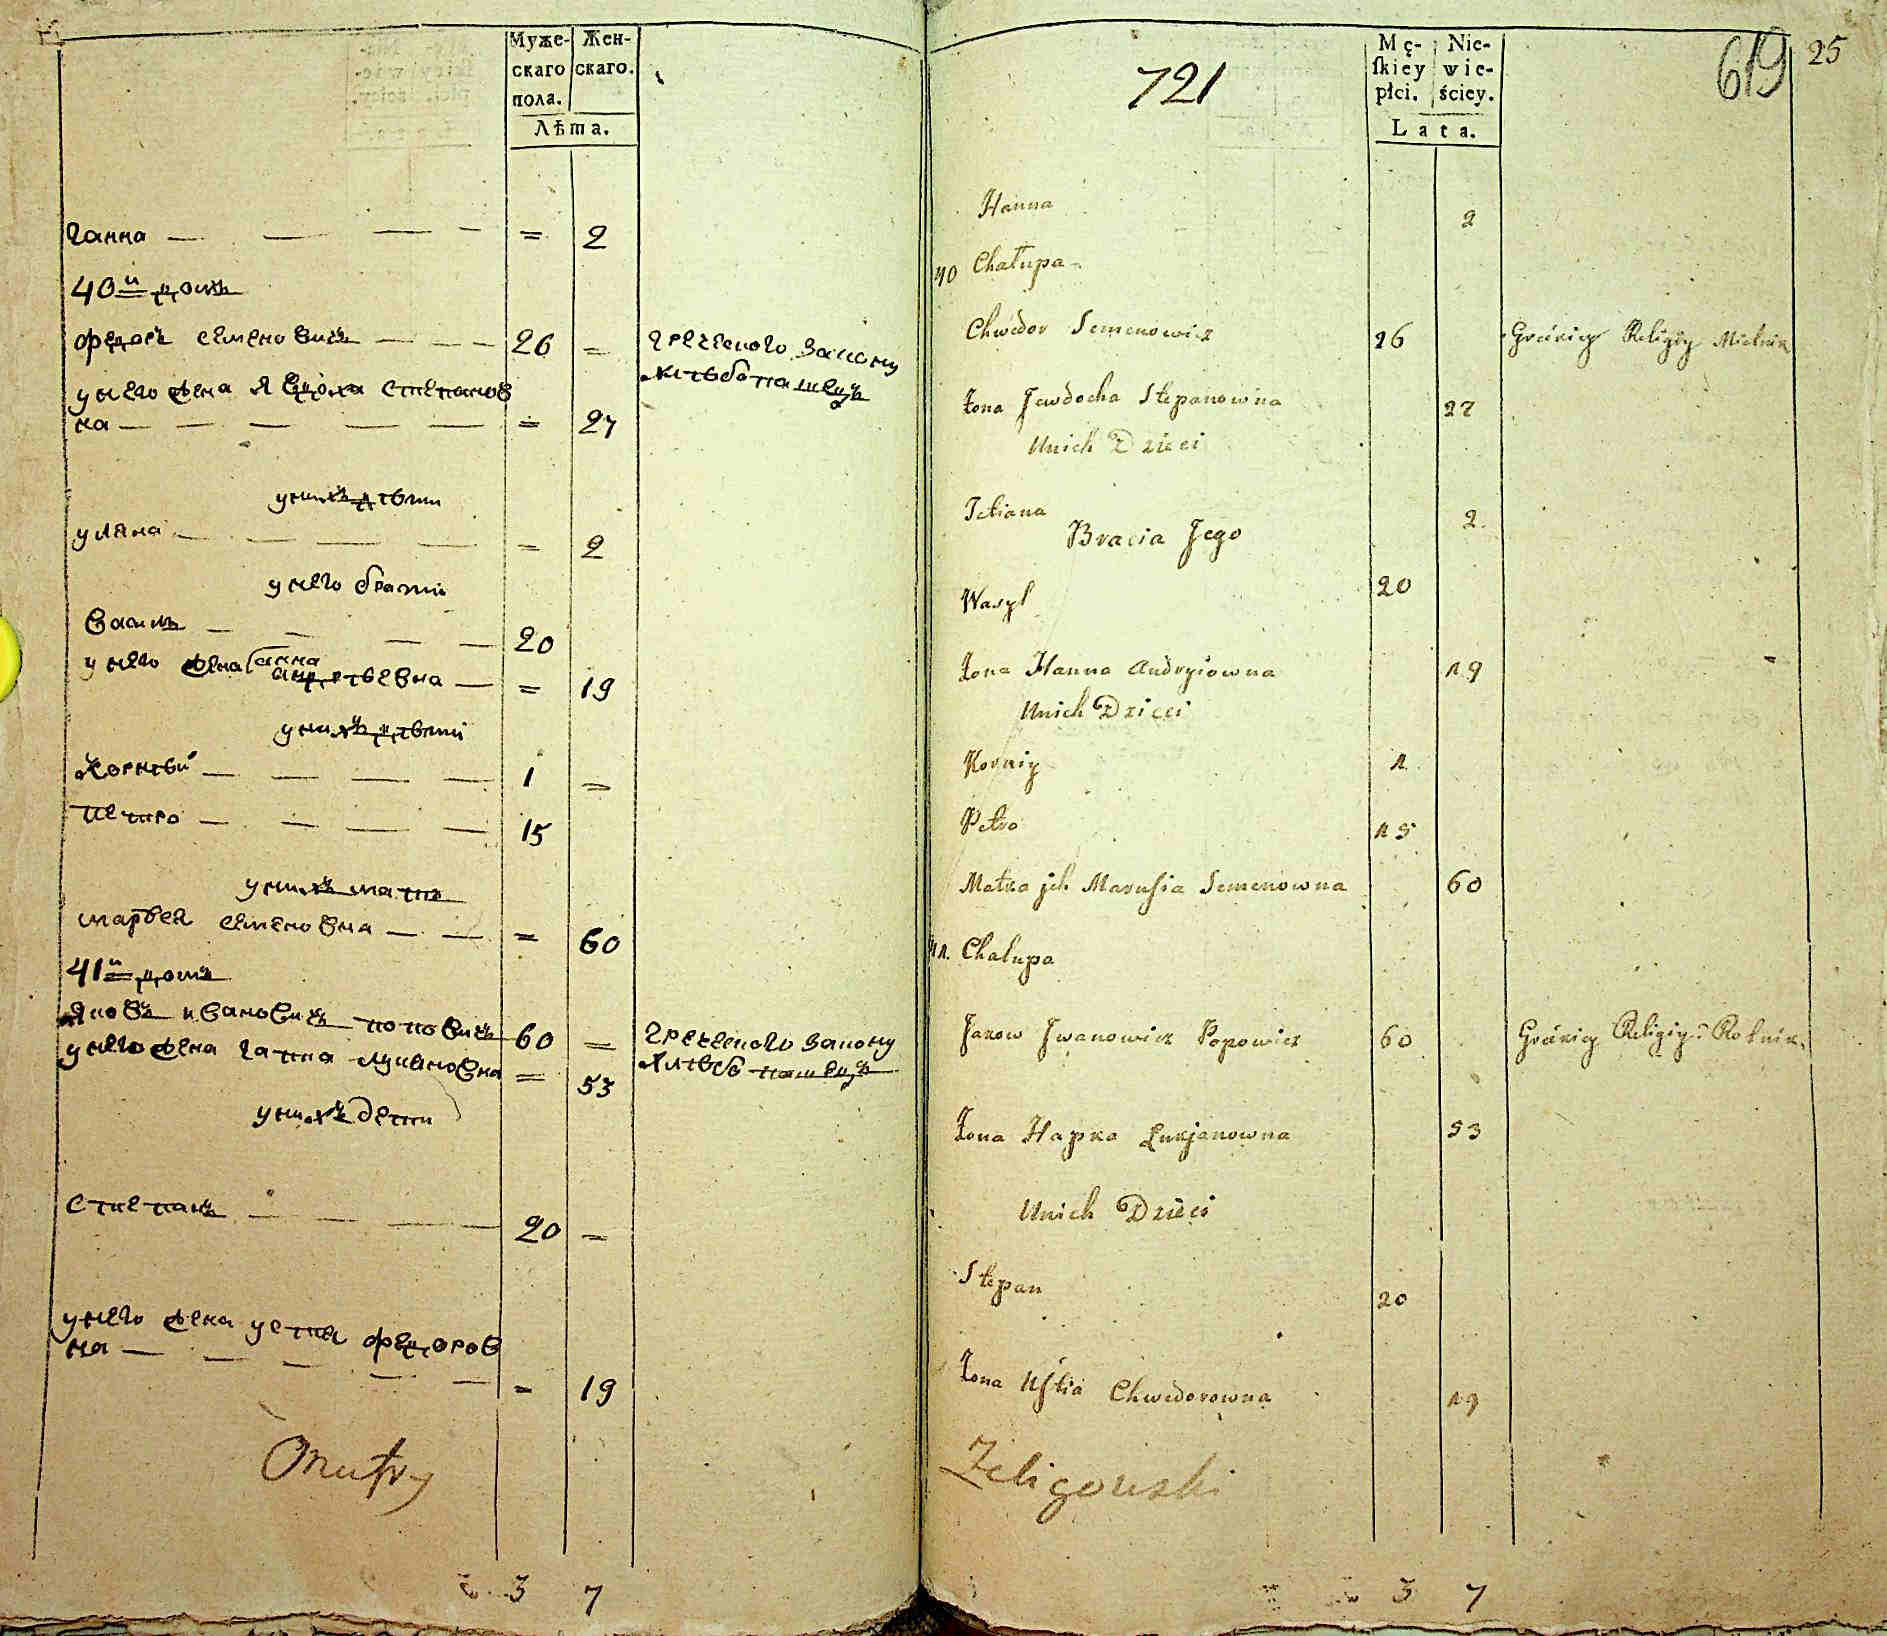 Муже- Жен-
скаго скаго.
пола.
Лѣта.
ганна — — — — = 2
40й домъ
Федоръ Семеновичъ — — — 26 = греческого закону
хлѣбопашецъ
у него жена Явдоха Степанов
на — — — — — = 27
у нихъ дѣти
уляна — — — — = 2
у него братии
Василь — — — — 20
у него жена ганна
андрѣевна — = 19
у нихъ дѣти
Корнѣй — — — — 1 =
Петро — — — — 15
у нихъ мать
марвея Семеновна — — = 60
41й домъ
Яковъ Ивановичъ Поповичъ 60 = греческого закону
хлѣбопашецъ
у него жена гапка лукяновна = 53
у нихъ дети
Степанъ — — — — 20 =
у него жена устия Федоров
на — — — — — = 19
3 7
721
Mę- Nie-
ſkiey wie-
płci. ściey.
Lata.
619 25
Hanna 2
40 Chałupa
Chwedor Semenowicz 26 Gréckiey Religiy Mielnik
Żona Jewdocha Stepanowna 27
Unich Dzieci
Tetiana 2
Bracia Jego
Wasyl 20
Żona Hanna Andryiowna 19
Unich Dzieci
Korniy 1
Petro 15
Matka jch Marusia Semenowna 60
41. Chałupa
Jakow Jwanowicz Popowicz 60 Gréckiey Religiy Rolnik
Żona Hapka Łukjanowna 53
Unich Dzieci
Stepan 20
Żona Uſtia Chwedorowna 19
Żeligowski
3 7